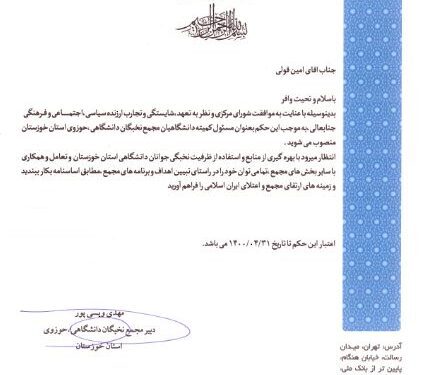 بسم الله الرحمن الرحیم
جناب اقای امین قوئی
باسلام و تحیت وافر
بدینوسیله با عنایت به موافقت شورای مرکزی و نظر به تعهد،شایستگی و تجارب ارزنده سیاسی،اجتماعی و فرهنگی
جنابعالی ،به موجب این حکم بعنوان مسئول کمیته دانشگاهیان مجمع نخبگان دانشگاهی ،حوزوی استان خوزستان
منصوب می شوید .
انتظار میرود با بهره گیری از منابع و استفاده از ظرفیت نخبگی جوانان دانشگاهی استان خوزستان و تعامل و همکاری
با سایر بخش های مجمع ،تمامی توان خود را در راستای تبیین اهداف و برنامه های مجمع ،مطابق اساسنامه بکار ببندید
و زمینه های ارتقای مجمع و اعتلای ایران اسلامی را فراهم آورید
اعتبار این حکم تا تاریخ ۱۴۰۰/۰۴/۳۱ می باشد.
مهدی ویسی پور
دبیر مجمع نخبگان دانشگاهی ،حوزوی
استان خوزستان
آدرس: تهران، میدان
رسالت، خیابان هنگام،
پایین تر از بانک ملی،